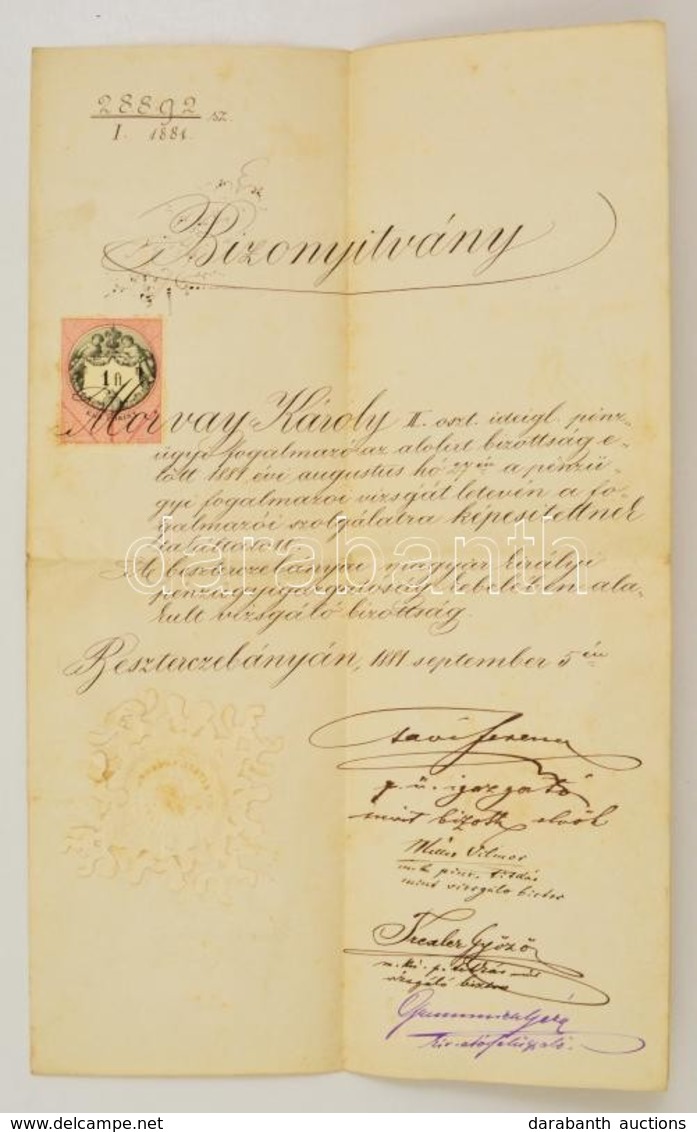 28892 sz.
I. 1881.
Bizonyitvány
1 fl
Morvay Károly II. oszt. ideigl. pénz-
ügyi fogalmazó az alolirt bizottság e-
lőtt 1881 évi augustus hó 27én a pénzü-
gyi fogalmazói vizsgát letevén a fo-
galmazói szolgálatra képesitettnek
találtatott.
A beszterczebányai magyar királyi
pénzügyigazgatóság kebelében ala-
kult vizsgáló bizottság.
Beszterczebányán, 1881 september 5én
p. ü. igazgató
mint bizott. elnök
Vilmos
m. k. pénz.
mint vizsgáló biztos
Győző
vizsgáló biztos
darabanth
www.darabanth.com
darabanth auctions